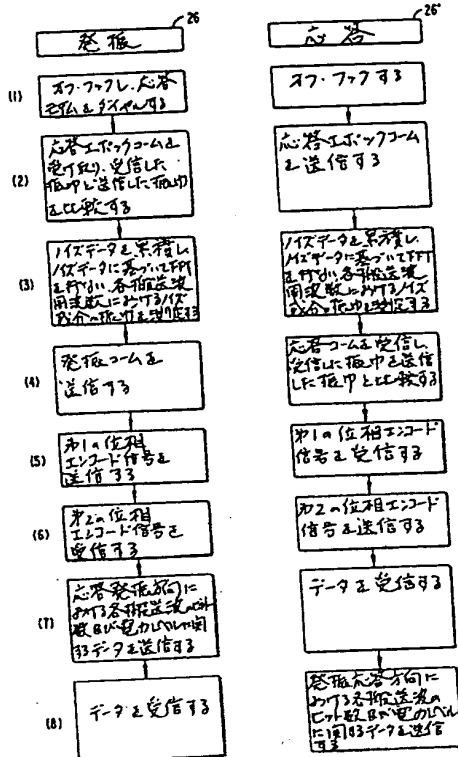 26
発振
(1)
オフ・フックし、応答
モデムをダイヤルする
(2)
応答エポックコームを
受け取り、受信した
振巾と送信した振巾
を比較する
(3)
ノイズデータを累積し、
ノイズデータに基づいてFFT
を行ない各搬送波
周波数におけるノイズ
成分の振巾を測定する
(4)
発振コームを
送信する
(5)
第1の位相
エンコード信号を
送信する
(6)
第2の位相
エンコード信号を
受信する
(7)
応答発振方向に
おける各搬送波のビット
数及び電力レベルに関
するデータを送信する
(8)
データを受信する
26'
応答
オフ・フックする
応答エポックコーム
を送信する
ノイズデータを累積し、
ノイズデータに基づいてFFT
を行ない各搬送波
周波数におけるノイズ
成分の振巾を測定する
応答コームを受信し、
受信した振巾を送信
した振巾と比較する
第1の位相エンコード
信号を受信する
第2の位相エンコード
信号を送信する
データを受信する
発振応答方向に
おける各搬送波の
ビット数及び電力レベル
に関するデータを送信
する